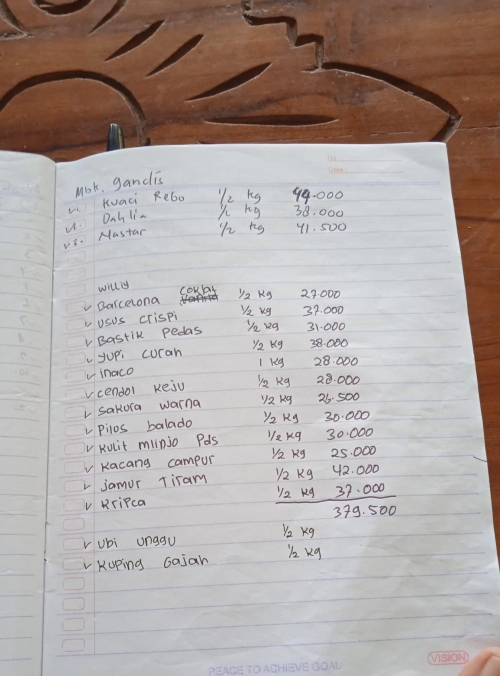 Mbk. gandis
v1. Kuaci Rebo 1/2 kg 44.000
v2. Dahlia 1/2 kg 38.000
v3. Nastar 1/2 kg 41.500
willy
v Barcelona coklat 1/2 kg 27.000
v usus crispi 1/2 kg 37.000
v Bastik pedas 1/2 kg 31.000
v yupi curah 1/2 kg 38.000
v inaco 1 kg 28.000
v cendol keju 1/2 kg 28.000
v sakura warna 1/2 kg 26.500
v pilos balado 1/2 kg 30.000
v kulit mlinjo pds 1/2 kg 30.000
v kacang campur 1/2 kg 25.000
v jamur Tiram 1/2 kg 42.000
v kripca 1/2 kg 37.000
379.500
v ubi unggu 1/2 kg
v kuping Gajah 1/2 kg
PEACE TO ACHIEVE GOAL
VISION